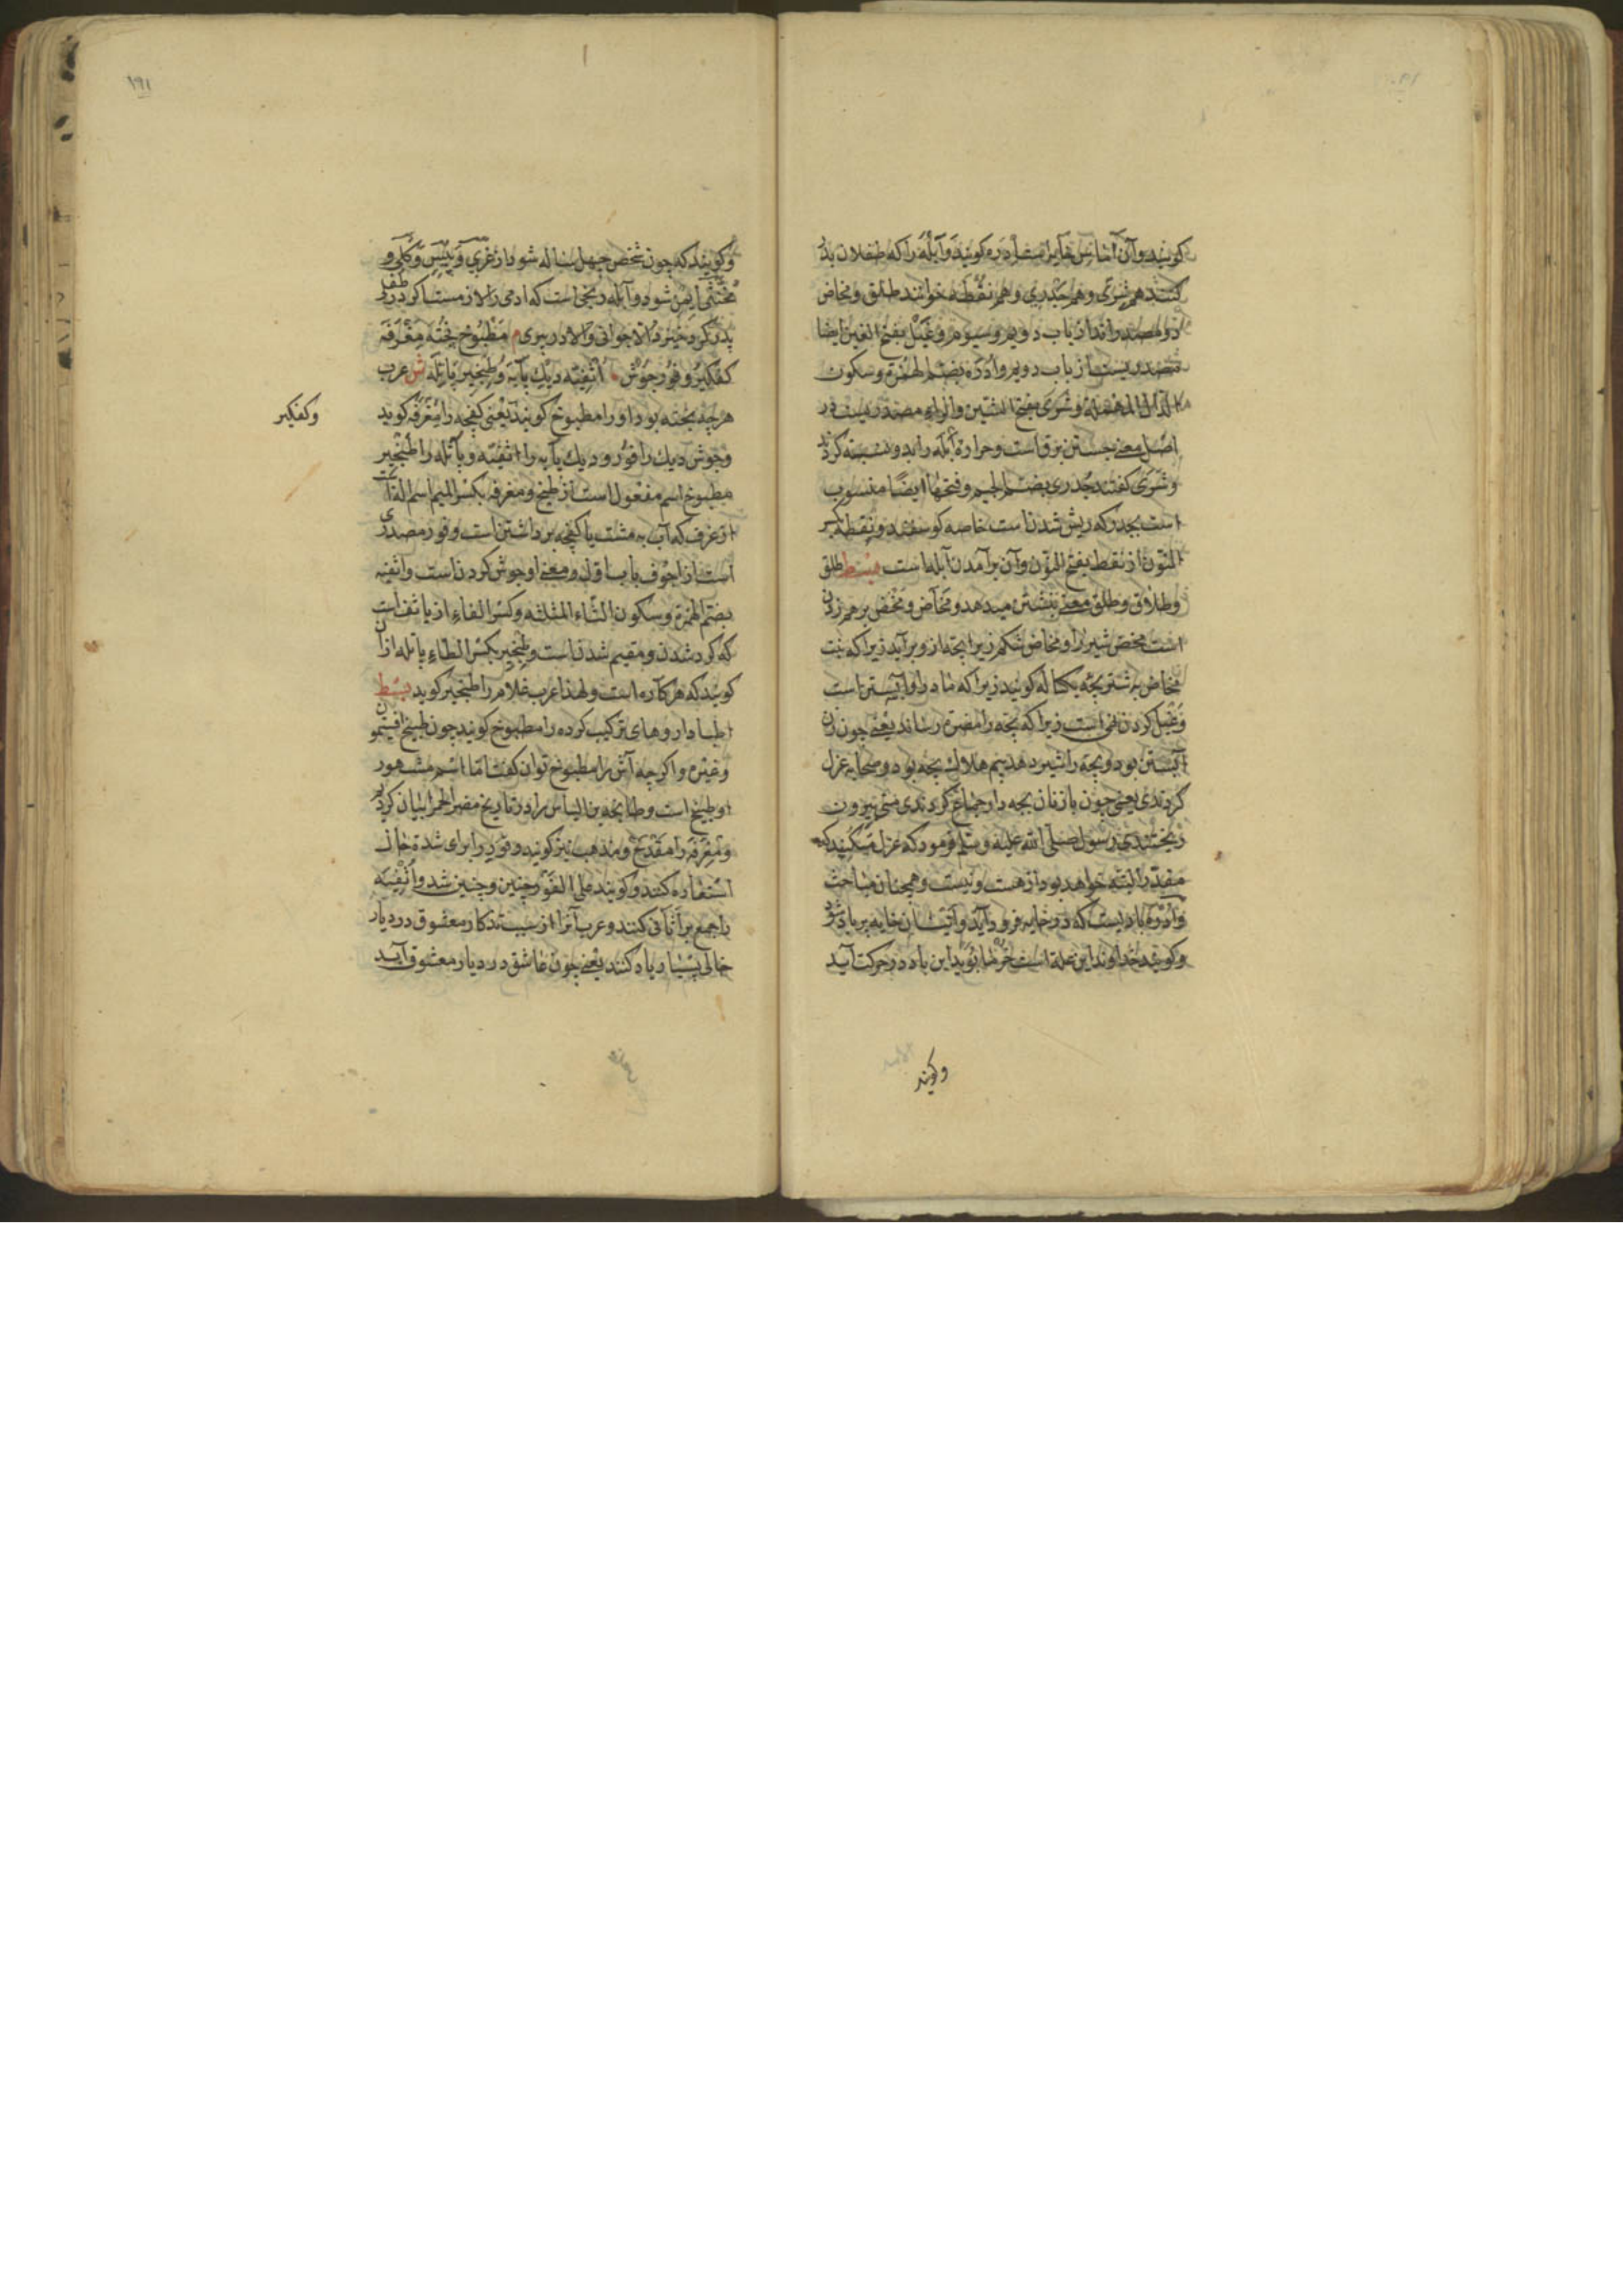 کویند وآن آماس خایه است ادره کویند وآبله را که طفلان بدر
کنند هم شری وهم جدری وهم نقطه خوانند طلق ومخاض
دو مصدراند از باب دویم وسیوم وغیل بفتح الغین ایضا
مصدریست از باب دویم وادره بضم الهمزة وسکون
الدال المهملة وشری بفتح الشین والراء مصدریست در
اصل معنی جستن برق است وحرارة آبله را بدو نسبت کردند
وشری کفتند جدری بضم الجیم وفتحها ایضا منسوب
است بجدر که ریش شدن است خاصه کوسفند ونقطه بکسر
النون از نقط بفتح النون وآن برآمدن آبله است بسط طلق
وطلاق وطلق معنی بنشستن میدهد ومخاض ومخض برهم زدن
است مخض شیر را ومخاض شکم زیرا بچه از و برآید زیرا که بنت
مخاض به شتر بچه یکساله کویند زیرا که مادر او آبستن است
وغیل کردن نهی است زیرا که بچه را مضرة رساند یعنی چون زن
آبستن بود وبچه را شیر دهد بیم هلاک بچه بود وصحابه عزل
کردندی یعنی چون با زنان بچه دار جماع کردندی منی بیرون
ریختندی رسول صلی الله علیه وسلم فرمود که عزل مکنید که
مقدر البته خواهد بود از هست ونیست وهمچنان مباحث
وادره بادیست که در خایه فرود آید وانثیان خایه پرباد شود
وکویند خداوند این علة است خرما بوید این باد در حرکت آید
وکویند
۱۹۱
وکویند که چون شخص چهل ساله شود از غری وپیس وکلی و
مخنثی ایمن شود وآبله رنجی است که ادمی را لازمست اکر در طفلی
پدر کردخیزد والا جوانی والا در پیری م مطبوخ پخته مغرفة
کفکیر وفور جوش اثفیه دیک پایه وطنجیر پاتله ش عرب
هرچه پخته بود او را مطبوخ کویند یعنی کفچه را مغرفه کوید
وکفکیر
وجوش دیک را فور ودیک پایه را اثفیه وپاتله را طنجیر
مطبوخ اسم مفعول است از طبخ ومغرفه بکسر المیم اسم الة است
از غرف که آب به مشت یا کفچه برداشتن است وفور مصدری
است از اجوف باب اول ومعنی او جوش کردن است واثفیه
بضم الهمزة وسکون الثاء المثلثه وکسر الفاء از باب ثفاست
که کرد شدن ومقیم شدن است وطنجیر بکسر الطاء پاتله از آن
کویند که هرکاره است ولهذا عرب غلام را طنجیر کوید بسط
اطبا داروهای ترکیب کرده را مطبوخ کویند چون طبیخ افتیمون
وغیره واکرچه آش را مطبوخ توان کفت اما اسم مشهور
او طبیخ است وطابخه بن الیاس را در تاریخ مضر الحمرا بیان کردیم
ومغرفه را مقدح ومذهب نیز کویند وفور را برای شدة حال
استعاره کنند وکویند علی الفور چنین وچنین شد واثفیه
را جمع بر اثافی کنند وعرب آنرا از سبب تذکار معشوق در دیار
خالی بسیار یاد کنند یعنی چون عاشق در دیار معشوق آید